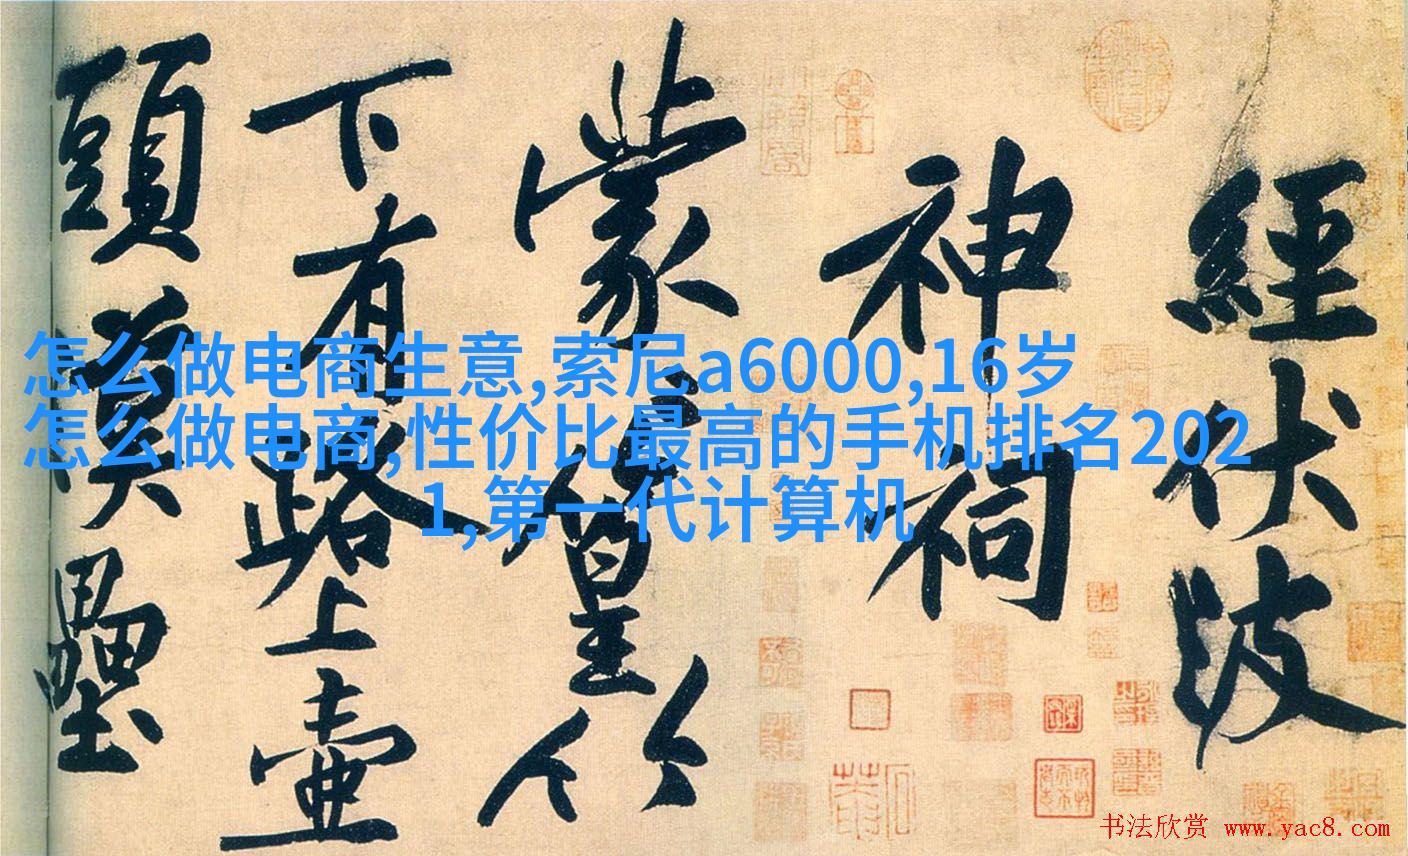 經伏波
神祠
蒙蒙篁竹
下有路上壺
頭漢壘
怎么做电商生意,索尼a6000,16岁
怎么做电商,性价比最高的手机排名202
1,第一代计算机
书法欣赏 www.yac8.com